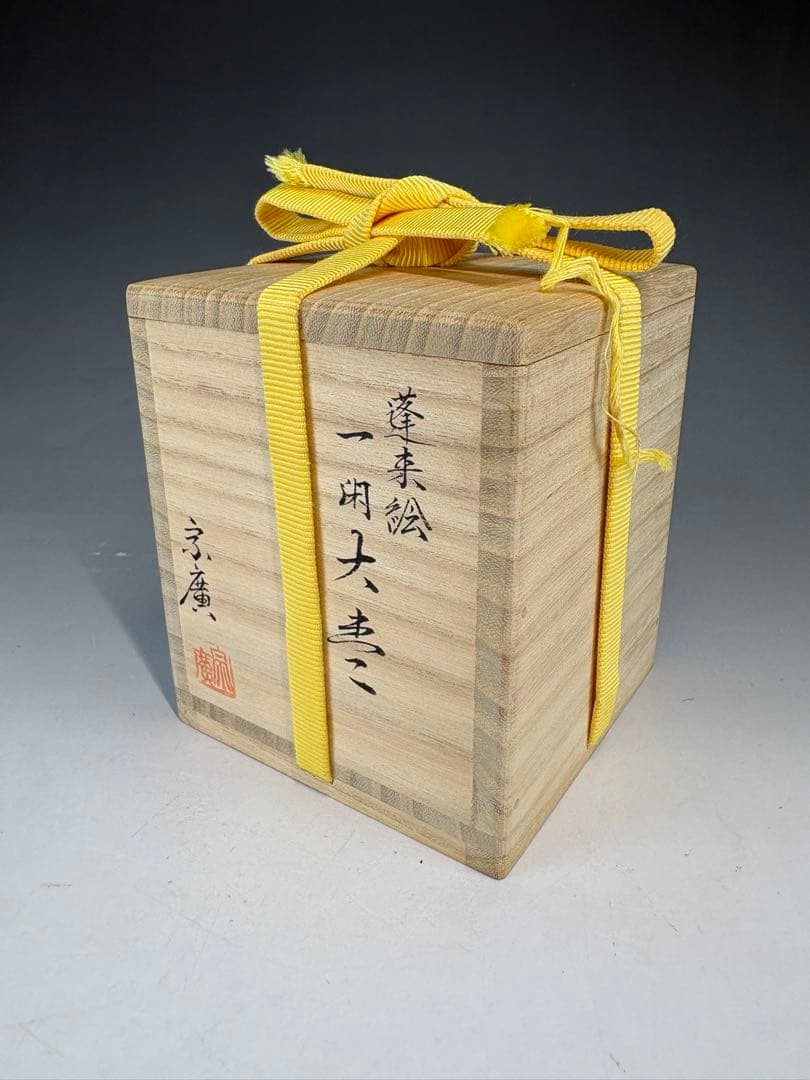 蓬来絵
一閑大棗
宗廣
宗廣